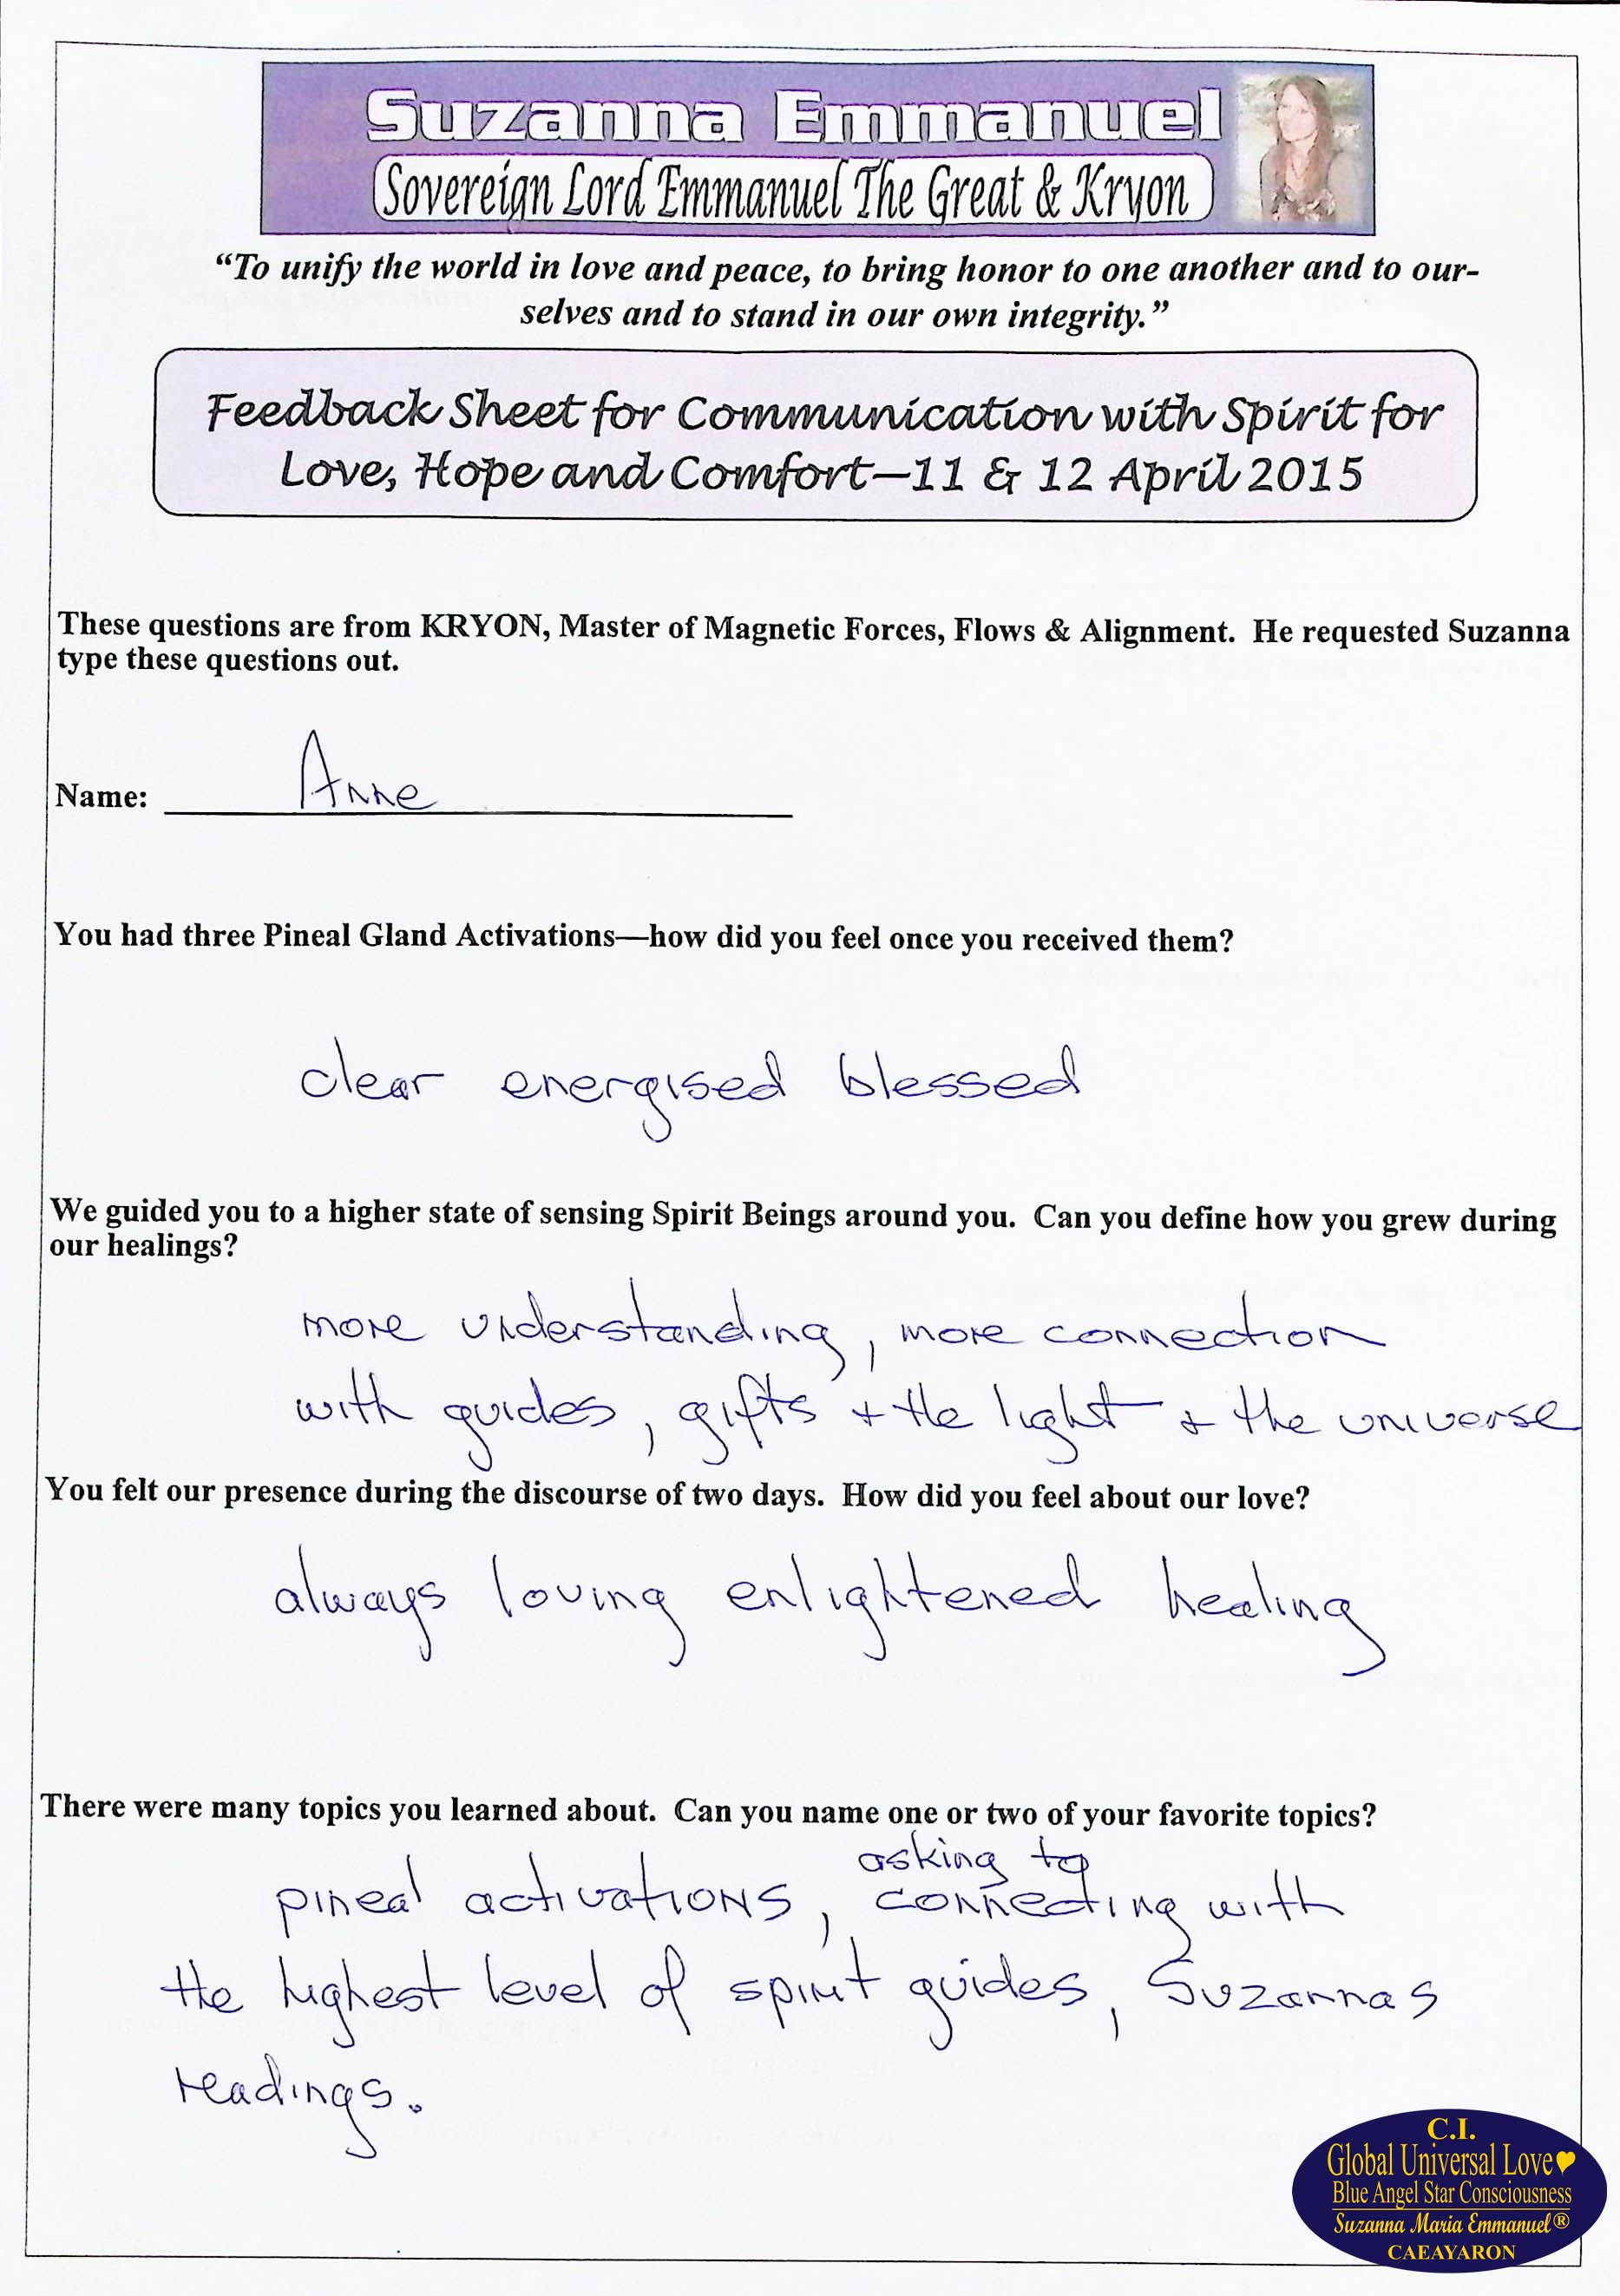 Suzanna Emmanuel
Sovereign Lord Emmanuel The Great & Kryon
“To unify the world in love and peace, to bring honor to one another and to our-
selves and to stand in our own integrity.”
Feedback Sheet for Communication with Spirit for
Love, Hope and Comfort—11 & 12 April 2015
These questions are from KRYON, Master of Magnetic Forces, Flows & Alignment. He requested Suzanna
type these questions out.
Name: Anne
You had three Pineal Gland Activations—how did you feel once you received them?
clear energised blessed
We guided you to a higher state of sensing Spirit Beings around you. Can you define how you grew during
our healings?
more understanding, more connection
with guides, gifts + the light + the universe
You felt our presence during the discourse of two days. How did you feel about our love?
always loving enlightened healing
There were many topics you learned about. Can you name one or two of your favorite topics?
asking to
pineal activations, connecting with
the highest level of spirit guides, Suzannas
readings.
C.I.
Global Universal Love
Blue Angel Star Consciousness
Suzanna Maria Emmanuel®
CAEAYARON